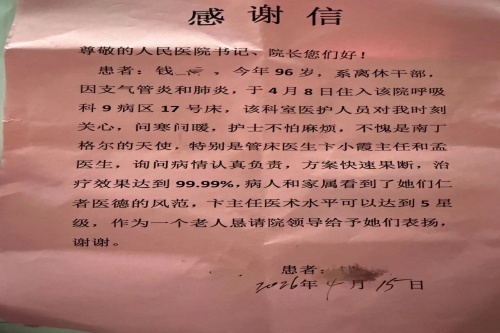 感谢信
尊敬的人民医院书记、院长您们好！
患者：钱，今年96岁，系离休干部，
因支气管炎和肺炎，于4月8日住入该院呼吸
科9病区17号床，该科室医护人员对我时刻
关心，问寒问暖，护士不怕麻烦，不愧是南丁
格尔的天使，特别是管床医生卞小霞主任和孟
医生，询问病情认真负责，方案快速果断，治
疗效果达到99.99%，病人和家属看到了她们仁
者医德的风范，卞主任医术水平可以达到5星
级，作为一个老人恳请院领导给予她们表扬，
谢谢。
患者：
2026年4月15日